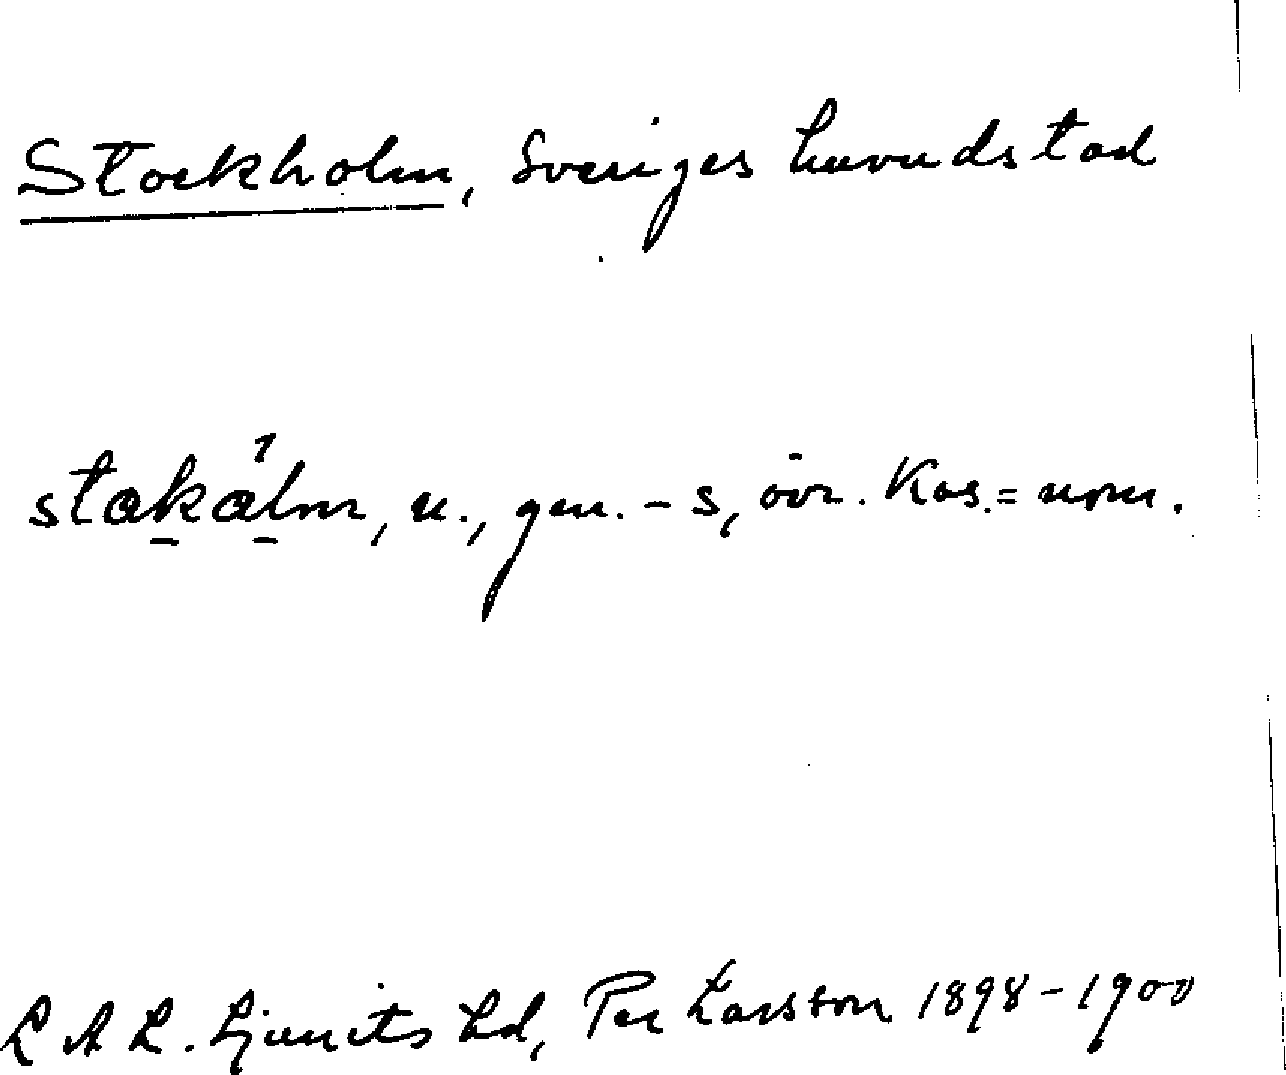 Stockholm, Sveriges huvudstad
stakálm, n., gen. -s, övr. Kas. = nom.
Ljunits hd, Per Larsson 1898-1900